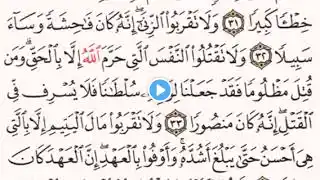 خِطْـًٔا كَبِيرًا ٣١ وَلَا تَقْرَبُوا۟ ٱلزِّنَىٰٓ ۖ إِنَّهُۥ كَانَ فَـٰحِشَةً وَسَآءَ
سَبِيلًا ٣٢ وَلَا تَقْتُلُوا۟ ٱلنَّفْسَ ٱلَّتِى حَرَّمَ ٱللَّهُ إِلَّا بِٱلْحَقِّ ۗ وَمَن
قُتِلَ مَظْلُومًا فَقَدْ جَعَلْنَا لِوَلِيِّهِۦ سُلْطَـٰنًا فَلَا يُسْرِف فِّى
ٱلْقَتْلِ ۖ إِنَّهُۥ كَانَ مَنصُورًا ٣٣ وَلَا تَقْرَبُوا۟ مَالَ ٱلْيَتِيمِ إِلَّا بِٱلَّتِى
هِىَ أَحْسَنُ حَتَّىٰ يَبْلُغَ أَشُدَّهُۥ ۚ وَأَوْفُوا۟ بِٱلْعَهْدِ ۖ إِنَّ ٱلْعَهْدَ كَانَ